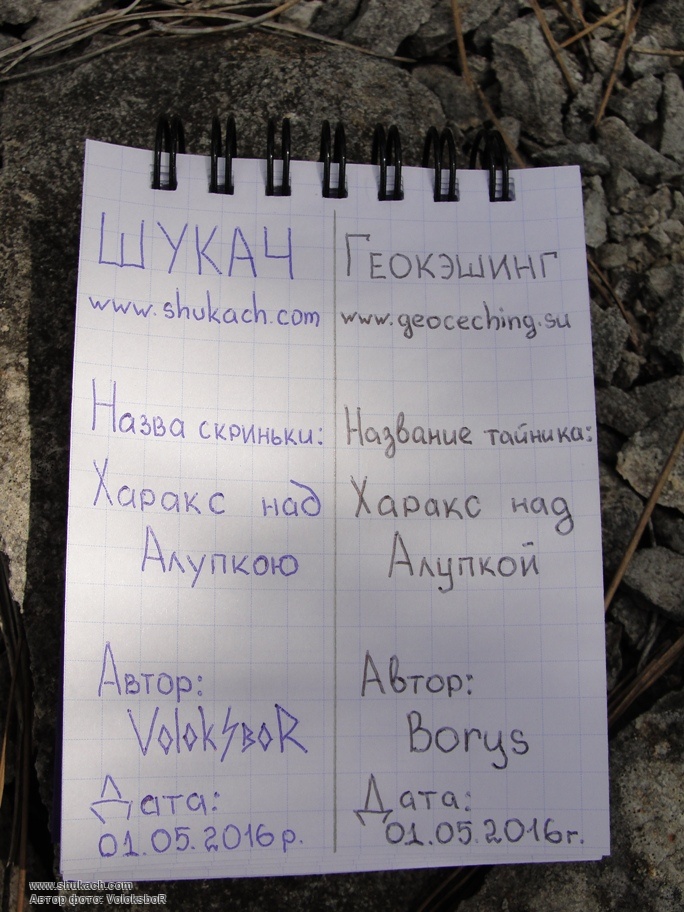 ШУКАЧ
www.shukach.com
Назва скриньки:
Харакс над
Алупкою
Автор:
VolokSboR
Дата:
01.05.2016р.
Геокэшинг
www.geoceching.su
Название тайника:
Харакс над
Алупкой
Автор:
Borys
Дата:
01.05.2016г.
www.shukach.com
Автор фото: VoloksboR